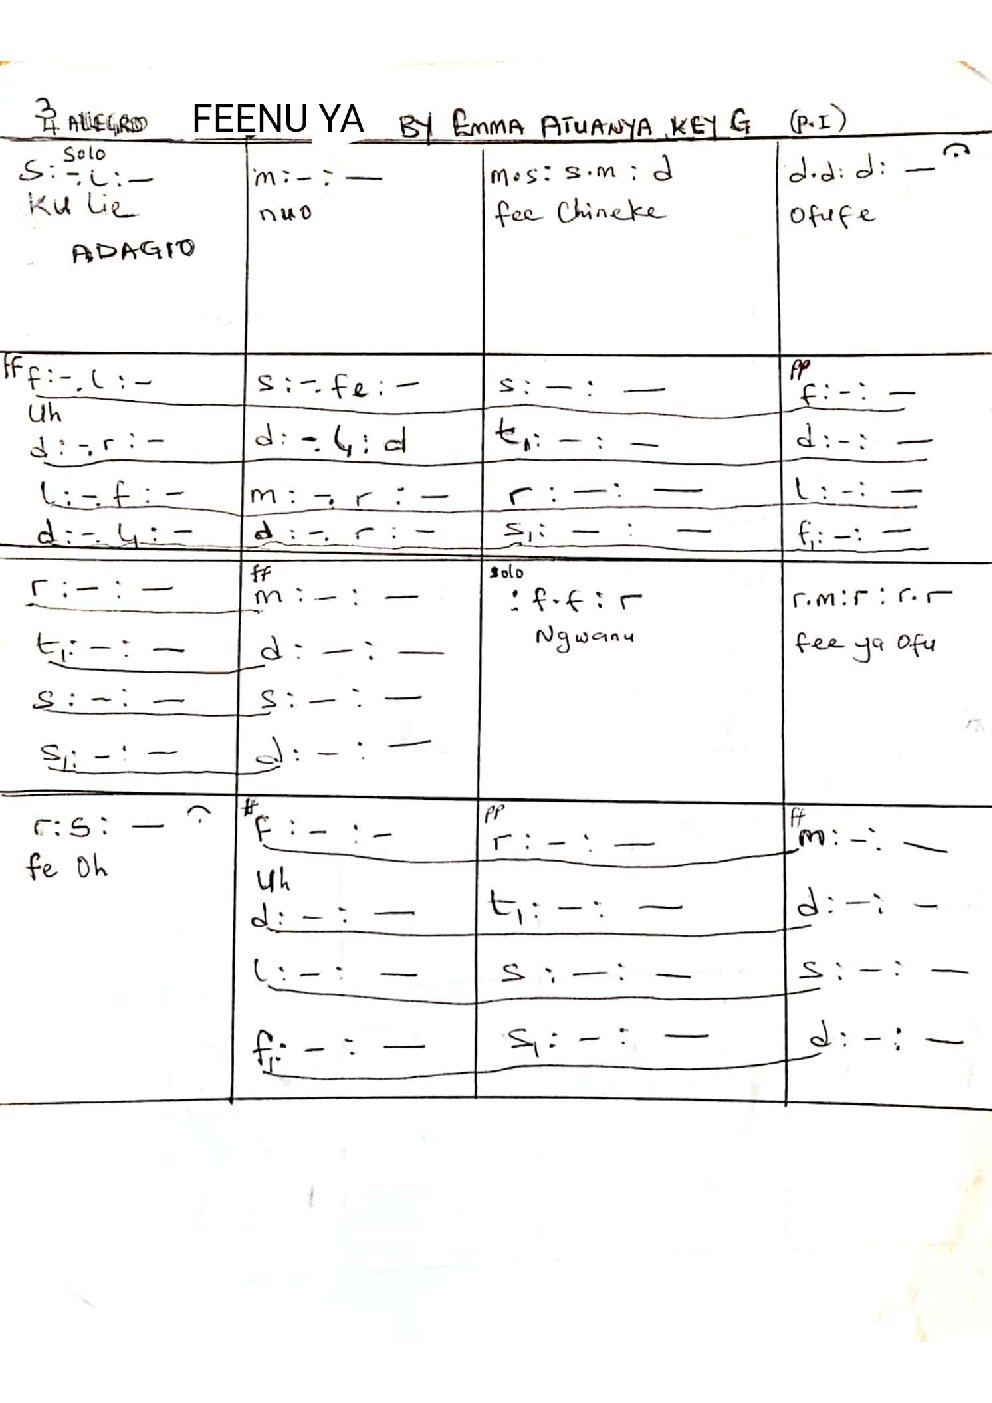 3/4 ALLEGRO FEENU YA BY EMMA ATUANYA KEY G (P.I)
Solo
S:-.l:— m:-:— m.s:s.m:d d.d:d:—
KU Lie nuo fee Chineke Ofufe
ADAGIO
ff f:-.l:- s:-.fe:- s:—:— pp f:-:—
Uh
d:-.r:- d:-.l₁:d t₁:—:— d:-:—
l:-.f:- m:-.r:— r:—:— l:-:—
d:-.l₁:- d:-.r:- s₁:—:— f₁:-:—
r:-:— ff m:-:— solo :f.f:r r.m:r:r.r
Ngwanu fee ya Ofu
t₁:-:— d:-:—
s:-:— s:-:—
s₁:-:— d:-:—
r:s:— ff f:-:- pp r:-:— ff m:-:—
fe Oh Uh
d:-:— t₁:-:— d:-:-
l:-:— s:—:— s:-:—
f₁:-:— s₁:-:— d:-:—